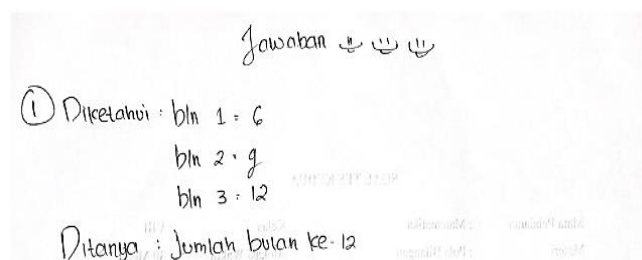 Jawaban
① Diketahui : bln 1 = 6
bln 2 = 9
bln 3 = 12
Ditanya : Jumlah bulan ke-12